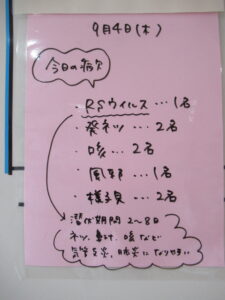 9月4日(木)
今日の病欠
・RSウイルス…1名
・発ネツ…2名
・咳…2名
・風邪…1名
・様子見…2名
潜伏期間 2〜8日
ネツ、鼻汁、咳など
気管支炎、肺炎になりやすい